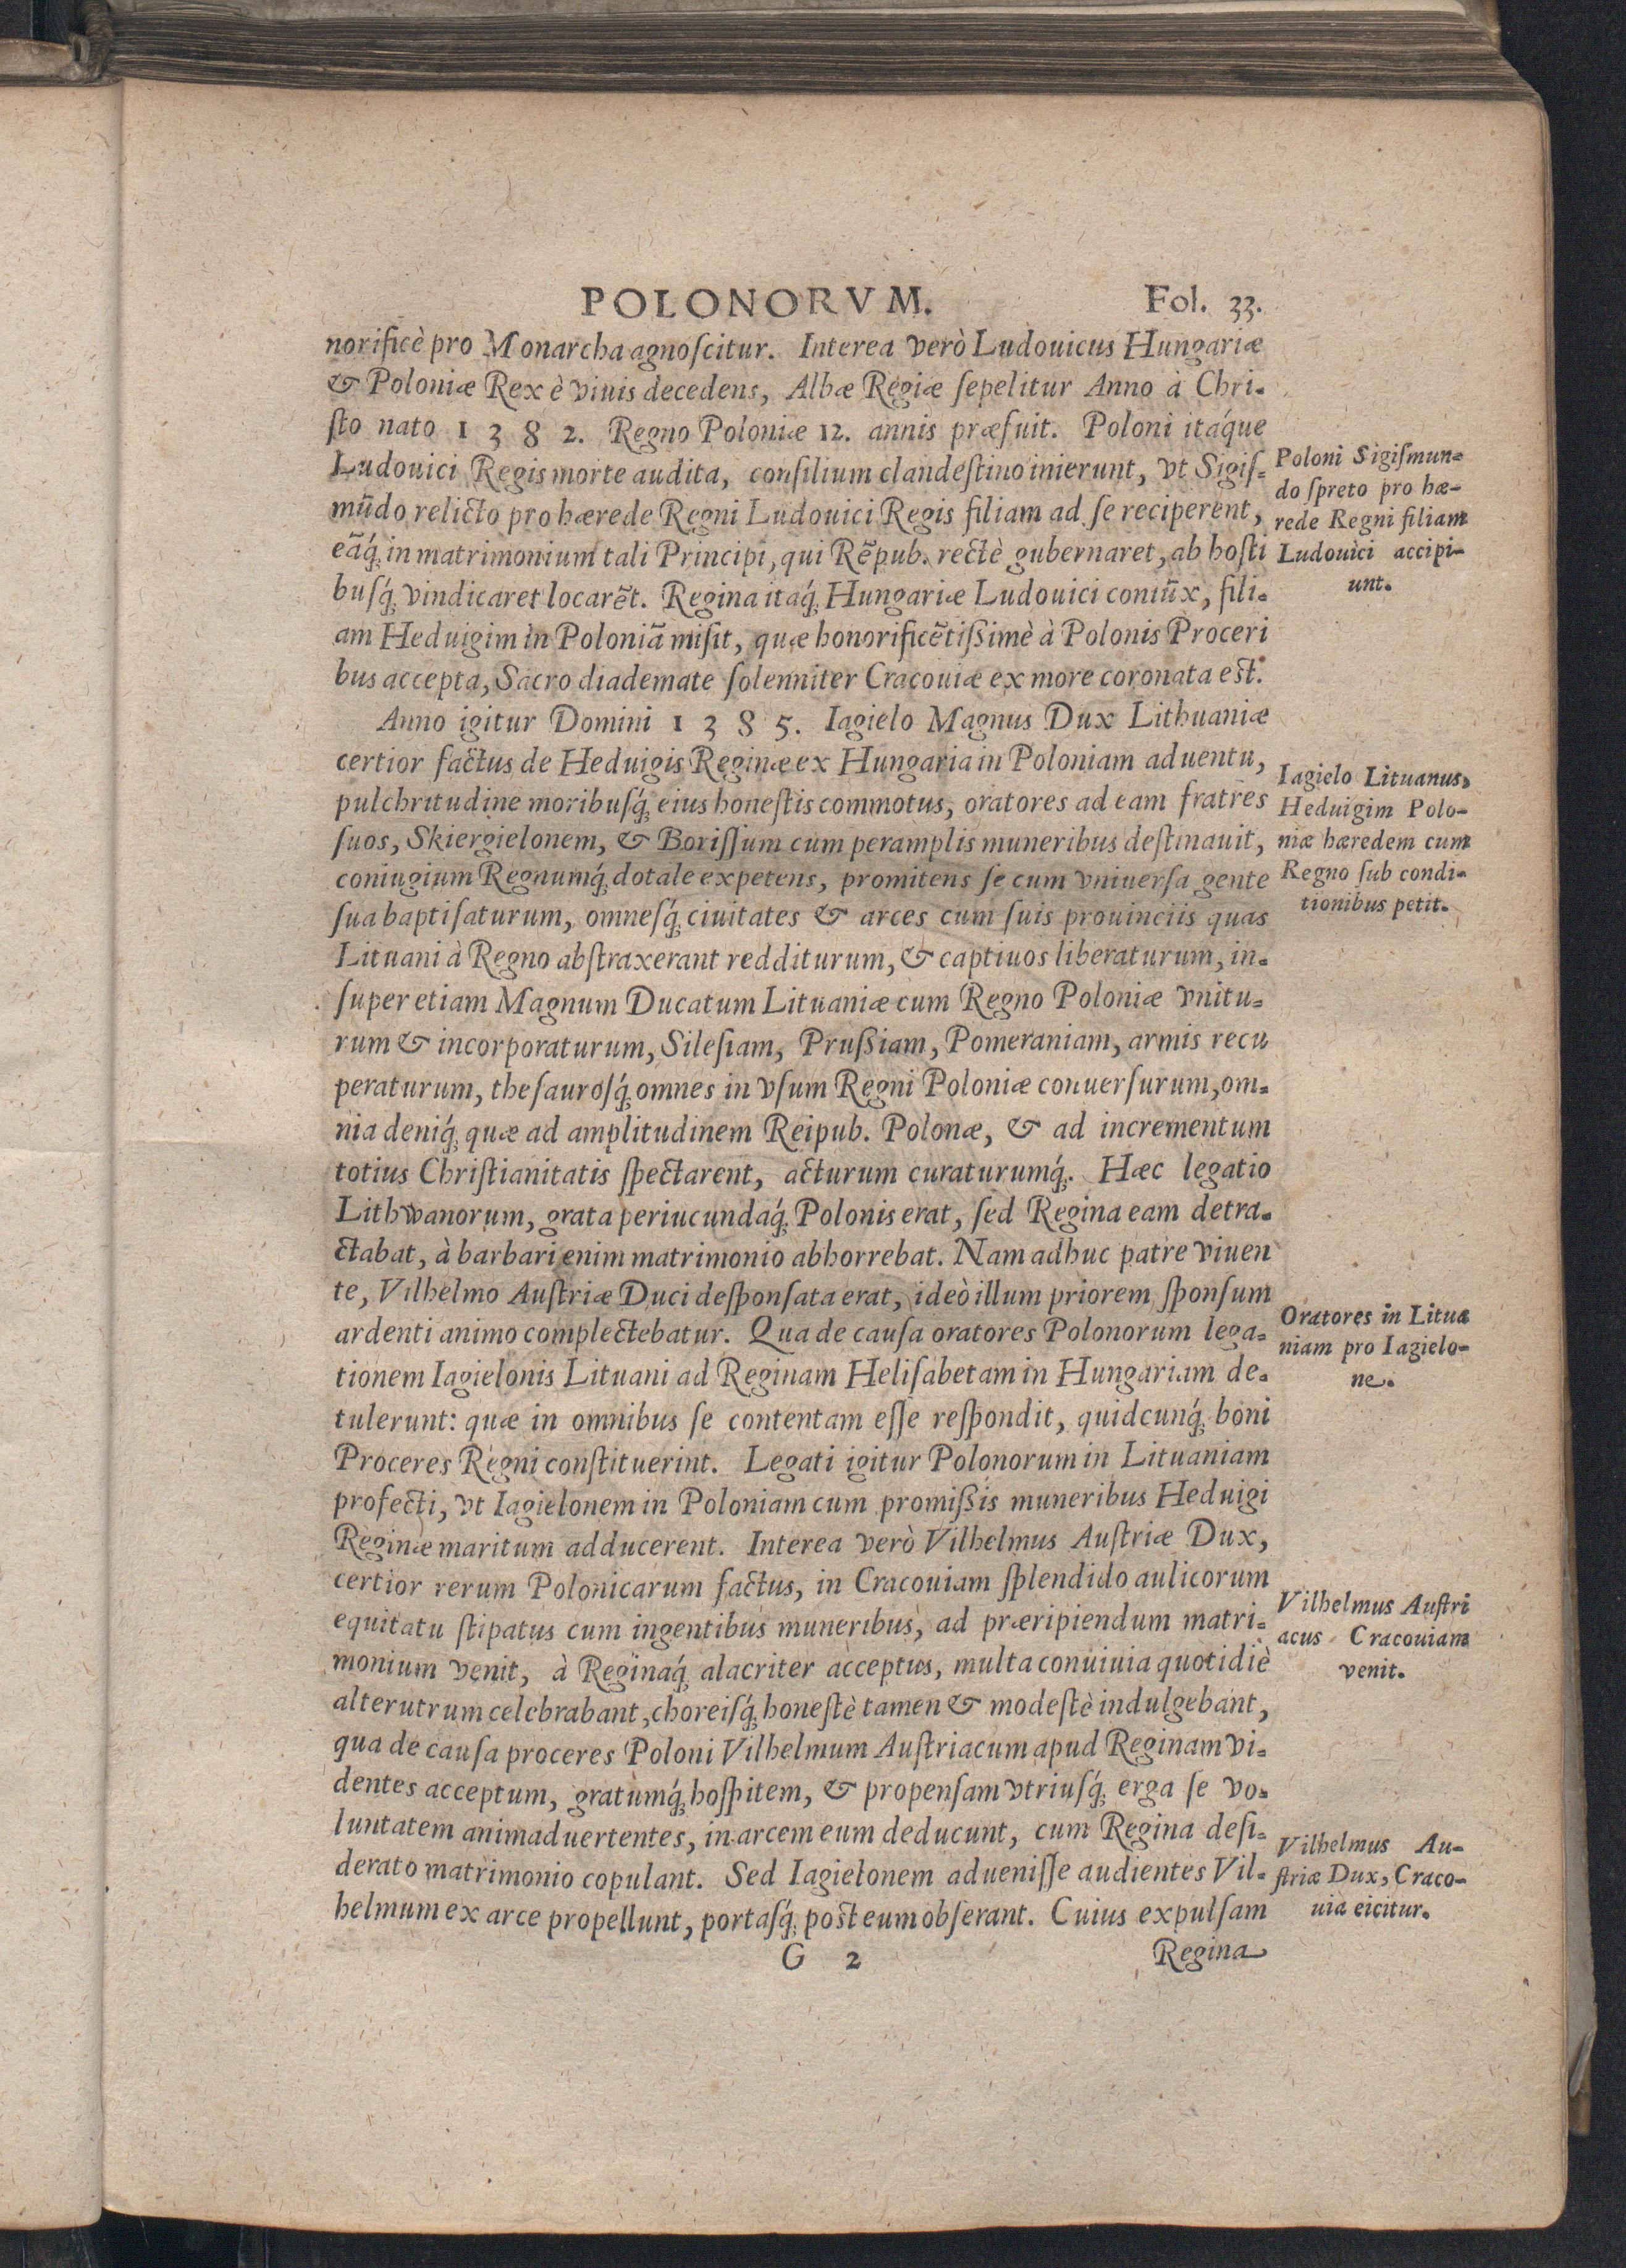 POLONORVM. Fol. 33.
norificè pro Monarcha agnoſcitur. Interea verò Ludouicus Hungariæ
& Poloniæ Rex è viuis decedens, Albæ Regiæ ſepelitur Anno à Chri-
ſto nato 1382. Regno Poloniæ 12. annis præfuit. Poloni itáque
Ludouici Regis morte audita, conſilium clandeſtino inierunt, vt Sigiſ-
mũdo relicto pro hærede Regni Ludouici Regis filiam ad ſe reciperent,
eãq́; in matrimonium tali Principi, qui Rẽpub. rectè gubernaret, ab hoſti
buſq́; vindicaret locarẽt. Regina itaq́; Hungariæ Ludouici coniũx, fili-
am Heduigim in Poloniã miſit, quæ honorificẽtiſſimè à Polonis Proceri
bus accepta, Sacro diademate ſolenniter Cracouiæ ex more coronata eſt.
Poloni Sigiſmun-
do ſpreto pro hæ-
rede Regni filiam
Ludouici accipi-
unt.
Anno igitur Domini 1385. Iagielo Magnus Dux Lithuaniæ
certior factus de Heduigis Reginæ ex Hungaria in Poloniam aduentu,
pulchritudine moribuſq́; eius honeſtis commotus, oratores ad eam fratres
ſuos, Skiergielonem, & Boriſſum cum peramplis muneribus deſtinauit,
coniugium Regnumq́; dotale expetens, promitens ſe cum vniuerſa gente
ſua baptiſaturum, omneſq́; ciuitates & arces cum ſuis prouinciis quas
Lituani à Regno abſtraxerant redditurum, & captiuos liberaturum, in-
ſuper etiam Magnum Ducatum Lituaniæ cum Regno Poloniæ vnitu-
rum & incorporaturum, Sileſiam, Pruſſiam, Pomeraniam, armis recu
peraturum, theſauroſq́; omnes in vſum Regni Poloniæ conuerſurum, om-
nia deniq́; quæ ad amplitudinem Reipub. Polonæ, & ad incrementum
totius Chriſtianitatis ſpectarent, acturum curaturumq́;. Hæc legatio
Lithwanorum, grata periucundaq́; Polonis erat, ſed Regina eam detra-
ctabat, à barbari enim matrimonio abhorrebat. Nam adhuc patre viuen
te, Vilhelmo Auſtriæ Duci deſponſata erat, ideò illum priorem ſponſum
ardenti animo complectebatur. Qua de cauſa oratores Polonorum lega-
tionem Iagielonis Lituani ad Reginam Heliſabetam in Hungariam de-
tulerunt: quæ in omnibus ſe contentam eſſe reſpondit, quidcunq́; boni
Proceres Regni conſtituerint. Legati igitur Polonorum in Lituaniam
profecti, vt Iagielonem in Poloniam cum promiſſis muneribus Heduigi
Reginæ maritum adducerent. Interea verò Vilhelmus Auſtriæ Dux,
certior rerum Polonicarum factus, in Cracouiam ſplendido aulicorum
equitatu ſtipatus cum ingentibus muneribus, ad præripiendum matri-
monium venit, à Reginaq́; alacriter acceptus, multa conuiuia quotidiè
alterutrum celebrabant, choreiſq́; honeſtè tamen & modeſtè indulgebant,
qua de cauſa proceres Poloni Vilhelmum Auſtriacum apud Reginam vi-
dentes acceptum, gratumq́; hoſpitem, & propenſam vtriuſq́; erga ſe vo-
luntatem animaduertentes, in arcem eum deducunt, cum Regina deſi-
derato matrimonio copulant. Sed Iagielonem adueniſſe audientes Vil-
helmum ex arce propellunt, portaſq́; poſt eum obſerant. Cuius expulſam
Iagielo Lituanus,
Heduigim Polo-
niæ hæredem cum
Regno ſub condi-
tionibus petit.
Oratores in Litua
niam pro Iagielo-
ne.
Vilhelmus Auſtri
acus Cracouiam
venit.
Vilhelmus Au-
ſtriæ Dux, Craco-
uia eicitur.
G 2 Regina